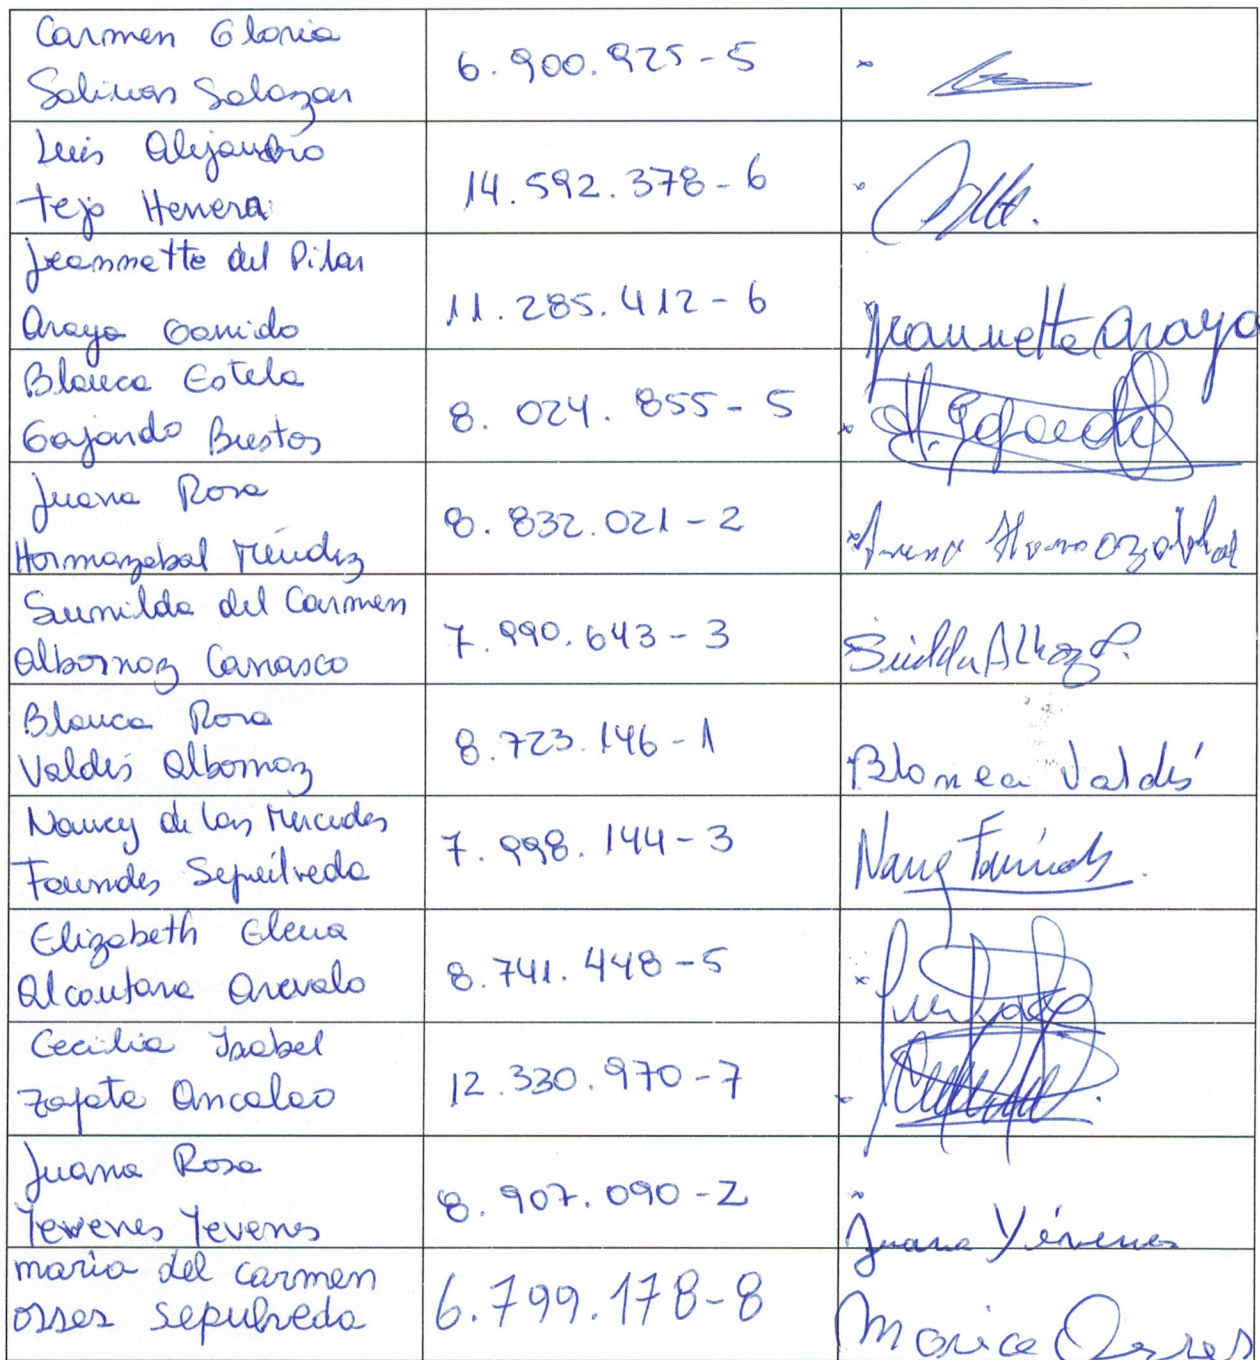 Carmen Gloria
Salinas Salazar
6.900.925-5
Luis Alejandro
tejo Herrera
14.592.378-6
Jeannette del Pilar
Araya Garrido
11.285.412-6
Jeannette Araya
Blanca Estela
Gajardo Bustos
8.024.855-5
Juana Rosa
Hormazabal Méndez
8.832.021-2
Sumilda del Carmen
Albornoz Carrasco
7.990.643-3
Blanca Rosa
Valdés Albornoz
8.723.146-1
Blanca Valdés
Nancy de las Mercedes
Faundes Sepúlveda
7.998.144-3
Elizabeth Elena
Alcantara Arevalo
8.741.448-5
Cecilia Isabel
Zapata Ancaleo
12.330.970-7
Juana Rosa
Yevenes Yevenes
8.907.090-2
Juana Yévenes
maria del carmen
osses sepulveda
6.799.178-8
Maria Osses